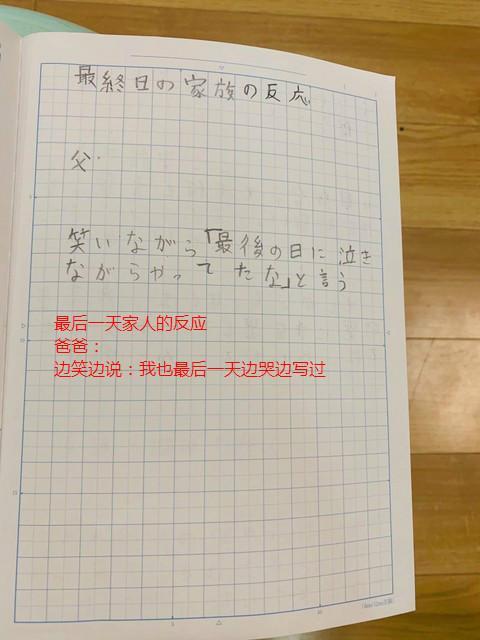 最終日の家族の反応
父.
笑いながら「最後の日に泣き
ながらやってたな」と言う
最后一天家人的反应
爸爸：
边笑边说：我也最后一天边哭边写过